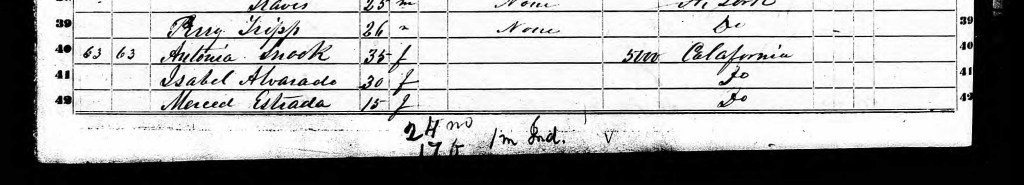 Graves 25 m None N. York
39 Perry Tripp 26 " None Do 39
40 63 63 Antonia Snook 35 f 5000 Calafornia 40
41 Isabel Alvarado 30 f Do 41
42 Merced Estrada 15 f Do 42
24 1 m Ind. V
17 f